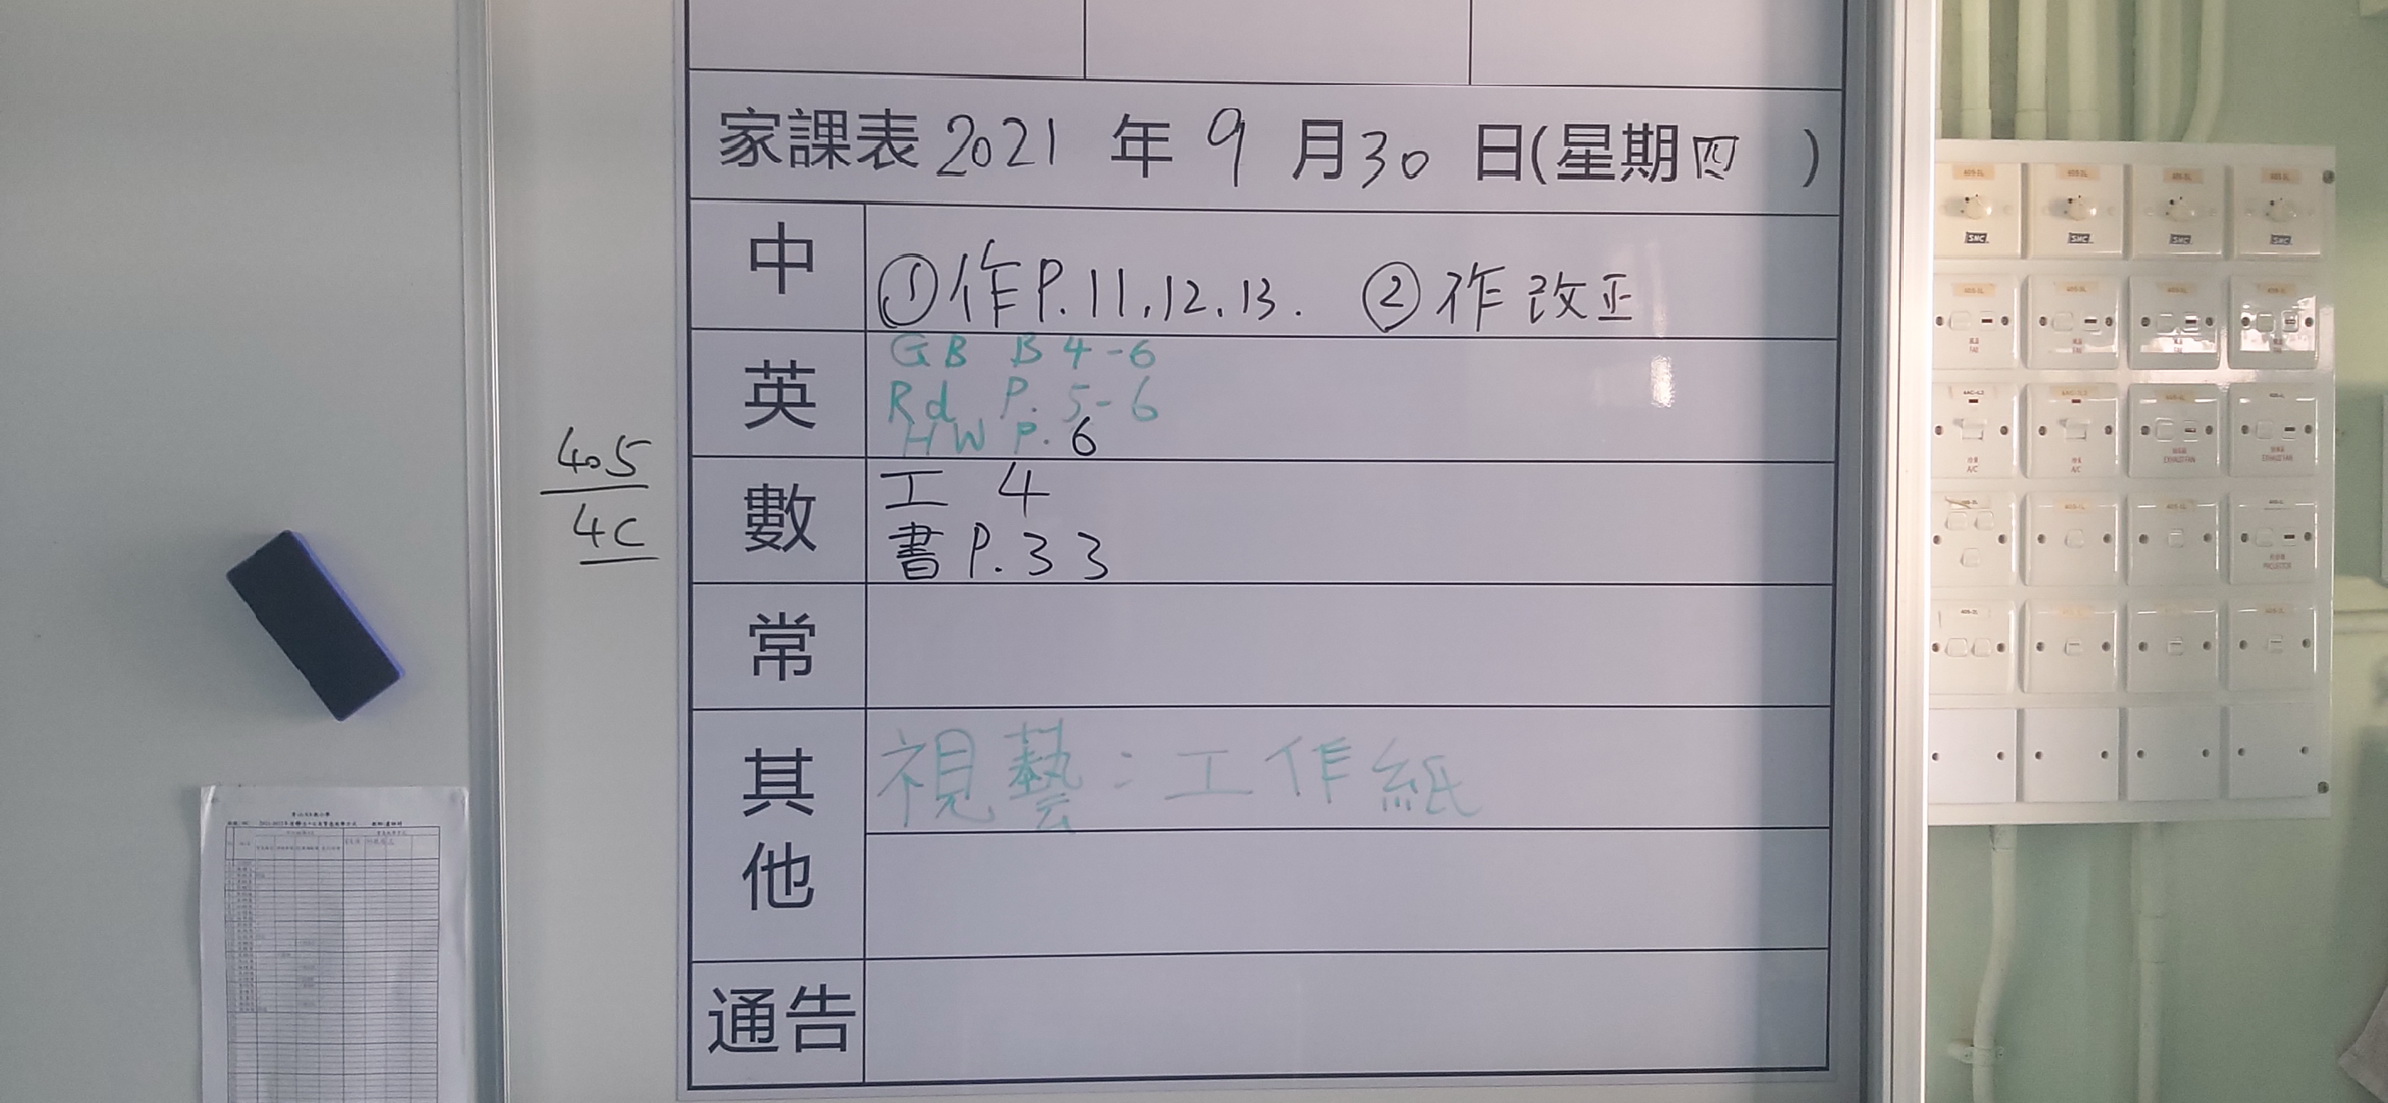 家課表 2021 年 9 月 30 日(星期四 )
中
①作P.11,12,13. ②作改正
英
GB B4-6
Rd P. 5-6
HW P. 6
數
工 4
書P.33
常
其他
視藝：工作紙
通告
405
4C
SMC SMC SMC SMC
A/C A/C EXHAUST FAN EXHAUST FAN
PROJECTOR